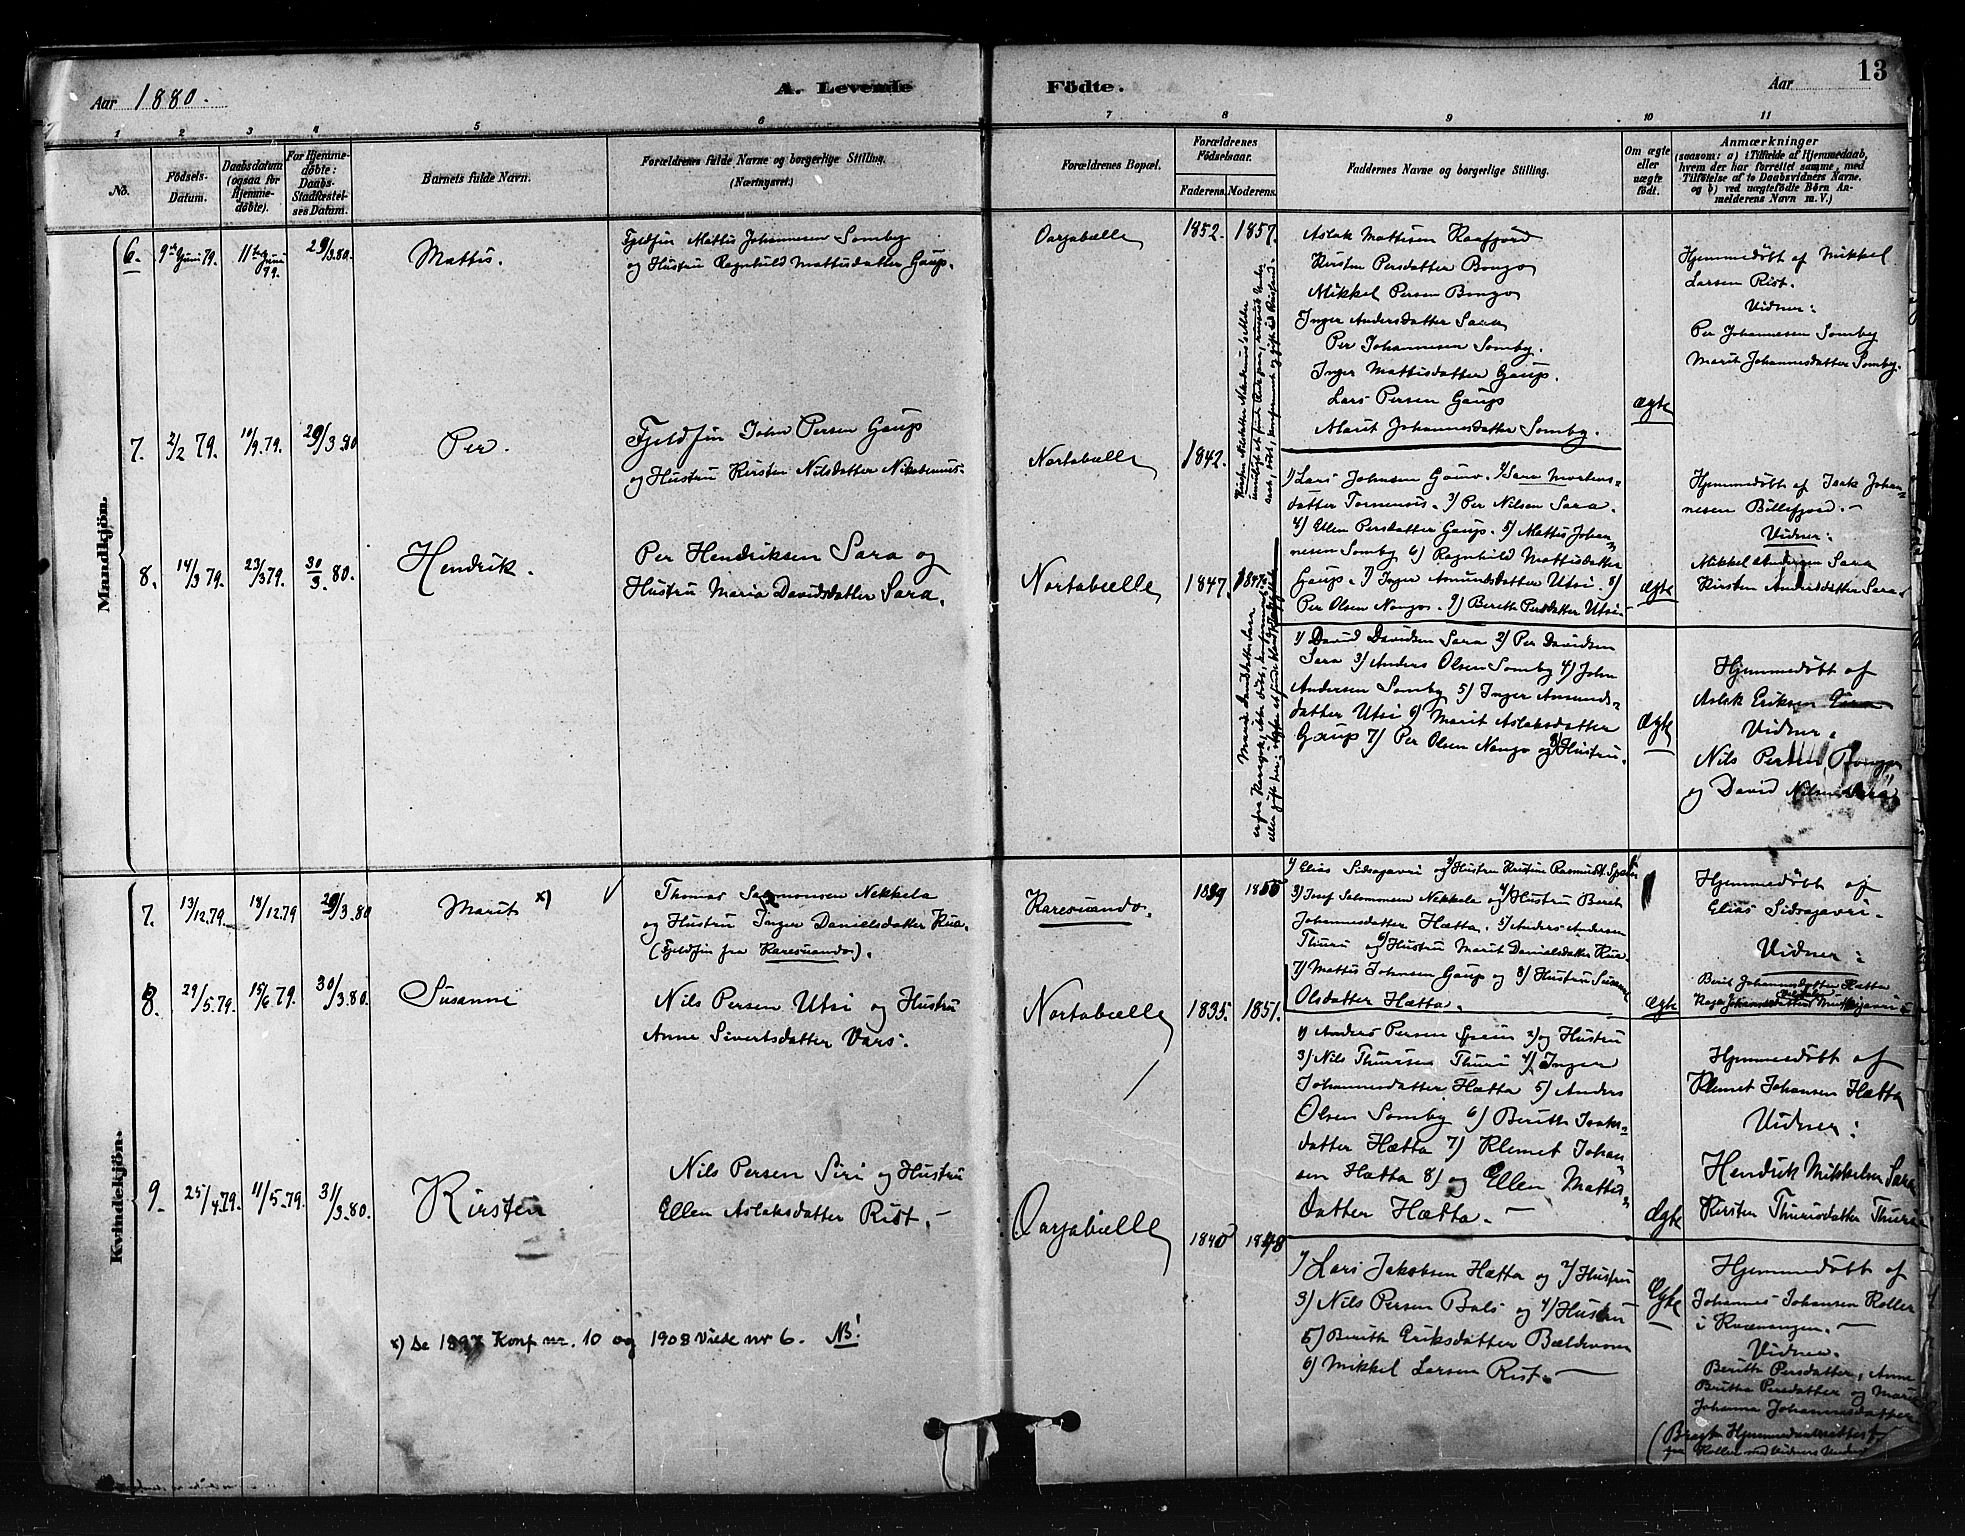 Aar 1880.
A. Levende
Födte.
Aar
13
1
2
3
4
5
6
7
8
9
10
11
No.
Födsels-
Datum.
Daabsdatum
(ogsaa for
Hjemme-
döbte).
For Hjemme-
döbte:
Daabs-
Stadfæstel-
ses Datum.
Barnets fulde Navn.
Forældrenes fulde Navne og borgerlige Stilling.
(Næringsvei.)
Forældrenes Bopæl.
Forældrenes
Födselsaar.
Faderens.
Moderens.
Faddernes Navne og borgerlige Stilling.
Om ægte
eller
uægte
födt.
Anmærkninger
(saasom: a) i Tilfælde af Hjemmedaab,
hvem der har forrettet samme, med
Tilföielse af to Daabsvidners Navne.
og b) ved uægtefödte Börn An-
melderens Navn m. V.)
Mandkjön.
6.
9de Juni 79.
11te Juni 79.
29/3.80.
Mattis.
Fjeldfin Mattis Johannesen Somby
og Hustru Ragnhild Mattisdatter Gaup.
Oarjabælle
1852.
1857.
Aslak Mattisen Kaafjord
Kirsten Persdatter Bongo
Mikkel Persen Bongo
Inger Andersdatter Sara
Per Johannesen Somby.
Inger Mattisdatter Gaup.
Lars Persen Gaup
Marit Johannesdatter Somby.
ægte
Hjemmedöbt af Mikkel
Larsen Rist.
Vidner:
Per Johannesen Somby
Marit Johannesdatter Somby.
7.
2/2 79.
10/9.79.
29/3.80
Per.
Fjeldfin John Persen Gaup
og Hustru Kirsten Nilsdatter Nikodemus.
Nortabælle
1842.
1) Lars Johnsen Gaino. 2) Sara Mortens-
datter Tornensis. 3) Per Nilsen Sara.
4) Ellen Persdatter Gaup. 5) Mattis Johan-
nesen Somby 6) Ragnhild Mattisdatter
Gaup. 7) Inger Amundsdatter Utsi. 8)
Per Olsen Nango. 9) Berith Persdatter Utsi
ægte
Hjemmedöbt af Isak Johan-
nesen Billefjord. –
Vidner:
Mikkel Andersen Sara
Kirsten Andersdatter Sara
8.
14/3 79.
23/3 79.
30/3. 80.
Hendrik.
Per Hendriksen Sara og
Hustru Maria Davidsdatter Sara.
Nortabælle
1847.
1) David Davidsen Sara 2) Per Davidsen
Sara 3) Anders Olsen Somby 4) John
Andersen Somby 5) Inger Amunds-
datter Utsi 6) Marit Aslaksdatter
Gaup 7) Per Olsen Nango og 8) Hustru.
ægte
Hjemmedöbt af
Aslak Eriksen
Vidner.
Nils Persen Bongo
og David Nilsen Sara
Kvindekjön.
7.
13/12.79.
18/12.79
29/3.80
Marit x) √
Thomas Salomonsen Nekkela
og Hustru Inger Danielsdatter Kua.
(Fjeldfin fra Karesuando).
Karesuando.
1839
1855
1) Elias Sidsagavri og 2) Hustru Kristine Rasmusd.
3) Josef Salomonsen Nekkela og 4) Hustru Berit
Johannesdatter Hætta. 5) Anders Andersen
Thuru og 6) Hustru Marit Danielsdatter Kua.
7) Mattis Johnsen Gaup og 8) Hustru Susanne
Olsdatter Hætta.
Hjemmedöbt af
Elias Sidsagavri.
Vidner:
Berit Johannesdatter Hætta
8.
29/5.79.
15/6 79.
30/3.80.
Susanne
Nils Persen Utsi og Hustru
Anne Sivertsdatter Vars.
Nortabælle
1835.
1851.
ægte
1) Anders Persen og 2) og Hustru
3) Nils Thuresen Thuri 4) Inger
Johannesdatter Hætta 5) Anders
Olsen Somby 6) Berith Isaks-
datter Hætta 7) Klemet Johan-
sen Hætta 8) og Ellen Mattis-
datter Hætta. –
Hjemmedöbt af
Klemet Johansen Hætta
Vidner:
Hendrik Mikkelsen Sara
Kirsten Thurisdatter Thuri
9.
25/4.79.
11/5.79.
31/3.80.
Kirsten
Nils Persen Siri og Hustru
Ellen Aslaksdatter Rist. –
Oarjabælle
1840
1848
ægte
1) Lars Jakobsen Hætta og 2) Hustru
3) Nils Persen Bals og 4) Hustru
5) Berith Eriksdatter
6) Mikkel Larsen Rist. –
Ægte
Hjemmedöbt af
Johannes Johansen Koller
i Kvænangen. –
Vidner.
Beritha Persdatter, Anne
Britha Persdatter og Maria
Johanna Johannesdatter
x) Se 1897 Konf nr. 10 og 1908 Viede nr 6. NB!